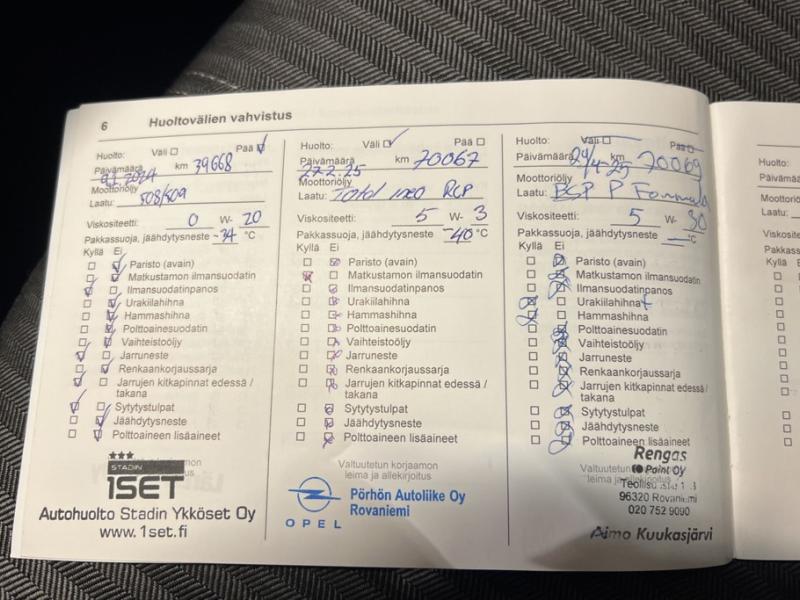 6 Huoltovälien vahvistus
Huolto: Väli Pää
Päivämäärä km 39668
9.1.2024
Moottoriöljy
Laatu: 508/509
Viskositeetti: 0 W- 20
Pakkassuoja, jäähdytysneste -34 °C
Kyllä Ei
Paristo (avain)
Matkustamon ilmansuodatin
Ilmansuodatinpanos
Urakiilahihna
Hammashihna
Polttoainesuodatin
Vaihteistoöljy
Jarruneste
Renkaankorjaussarja
Jarrujen kitkapinnat edessä /
takana
Sytytystulpat
Jäähdytysneste
Polttoaineen lisäaineet
STADIN
1SET
Autohuolto Stadin Ykköset Oy
www.1set.fi
Huolto: Väli Pää
Päivämäärä km 70067
27.2.25
Moottoriöljy
Laatu: Total ineo RCP
Viskositeetti: 5 W- 3
Pakkassuoja, jäähdytysneste -40 °C
Kyllä Ei
Paristo (avain)
Matkustamon ilmansuodatin
Ilmansuodatinpanos
Urakiilahihna
Hammashihna
Polttoainesuodatin
Vaihteistoöljy
Jarruneste
Renkaankorjaussarja
Jarrujen kitkapinnat edessä /
takana
Sytytystulpat
Jäähdytysneste
Polttoaineen lisäaineet
Valtuutetun korjaamon
leima ja allekirjoitus
OPEL
Pörhön Autoliike Oy
Rovaniemi
Huolto: Väli Pää
Päivämäärä 24/4-25 km 70069
Moottoriöljy
Laatu: BSP P Formula
Viskositeetti: 5 W- 30
Pakkassuoja, jäähdytysneste — °C
Kyllä Ei
Paristo (avain)
Matkustamon ilmansuodatin
Ilmansuodatinpanos
Urakiilahihna +
Hammashihna
Polttoainesuodatin
Vaihteistoöljy
Jarruneste
Renkaankorjaussarja
Jarrujen kitkapinnat edessä /
takana
Sytytystulpat
Jäähdytysneste
Polttoaineen lisäaineet
Rengas
Point Oy
96320 Rovaniemi
020 752 9090
Aimo Kuukasjärvi
Huolto:
Päivämää
Moottoriö
Laatu:
Viskosite
Pakkass
Kyllä E